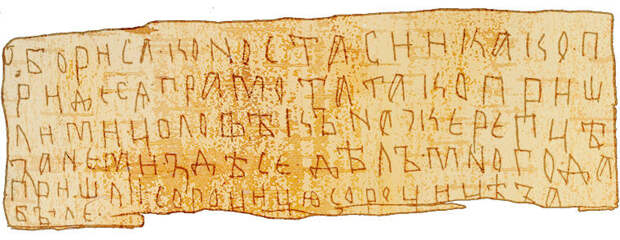 ѾБОРИСА·КОНОСТАСИИКАКО·П
РИДЕСАГРАМОТАТАКОПРИШ
ЛИМИЦОЛОВѢКЪНАЖЕРЕПЦѢ
ЗАНЕМИЗДѢСЕДѢЛЪМНОГОДА
ПРИШЛИСОРОЦИЦЮСОРОЦИЦѢЗА
БЪІЛЕ